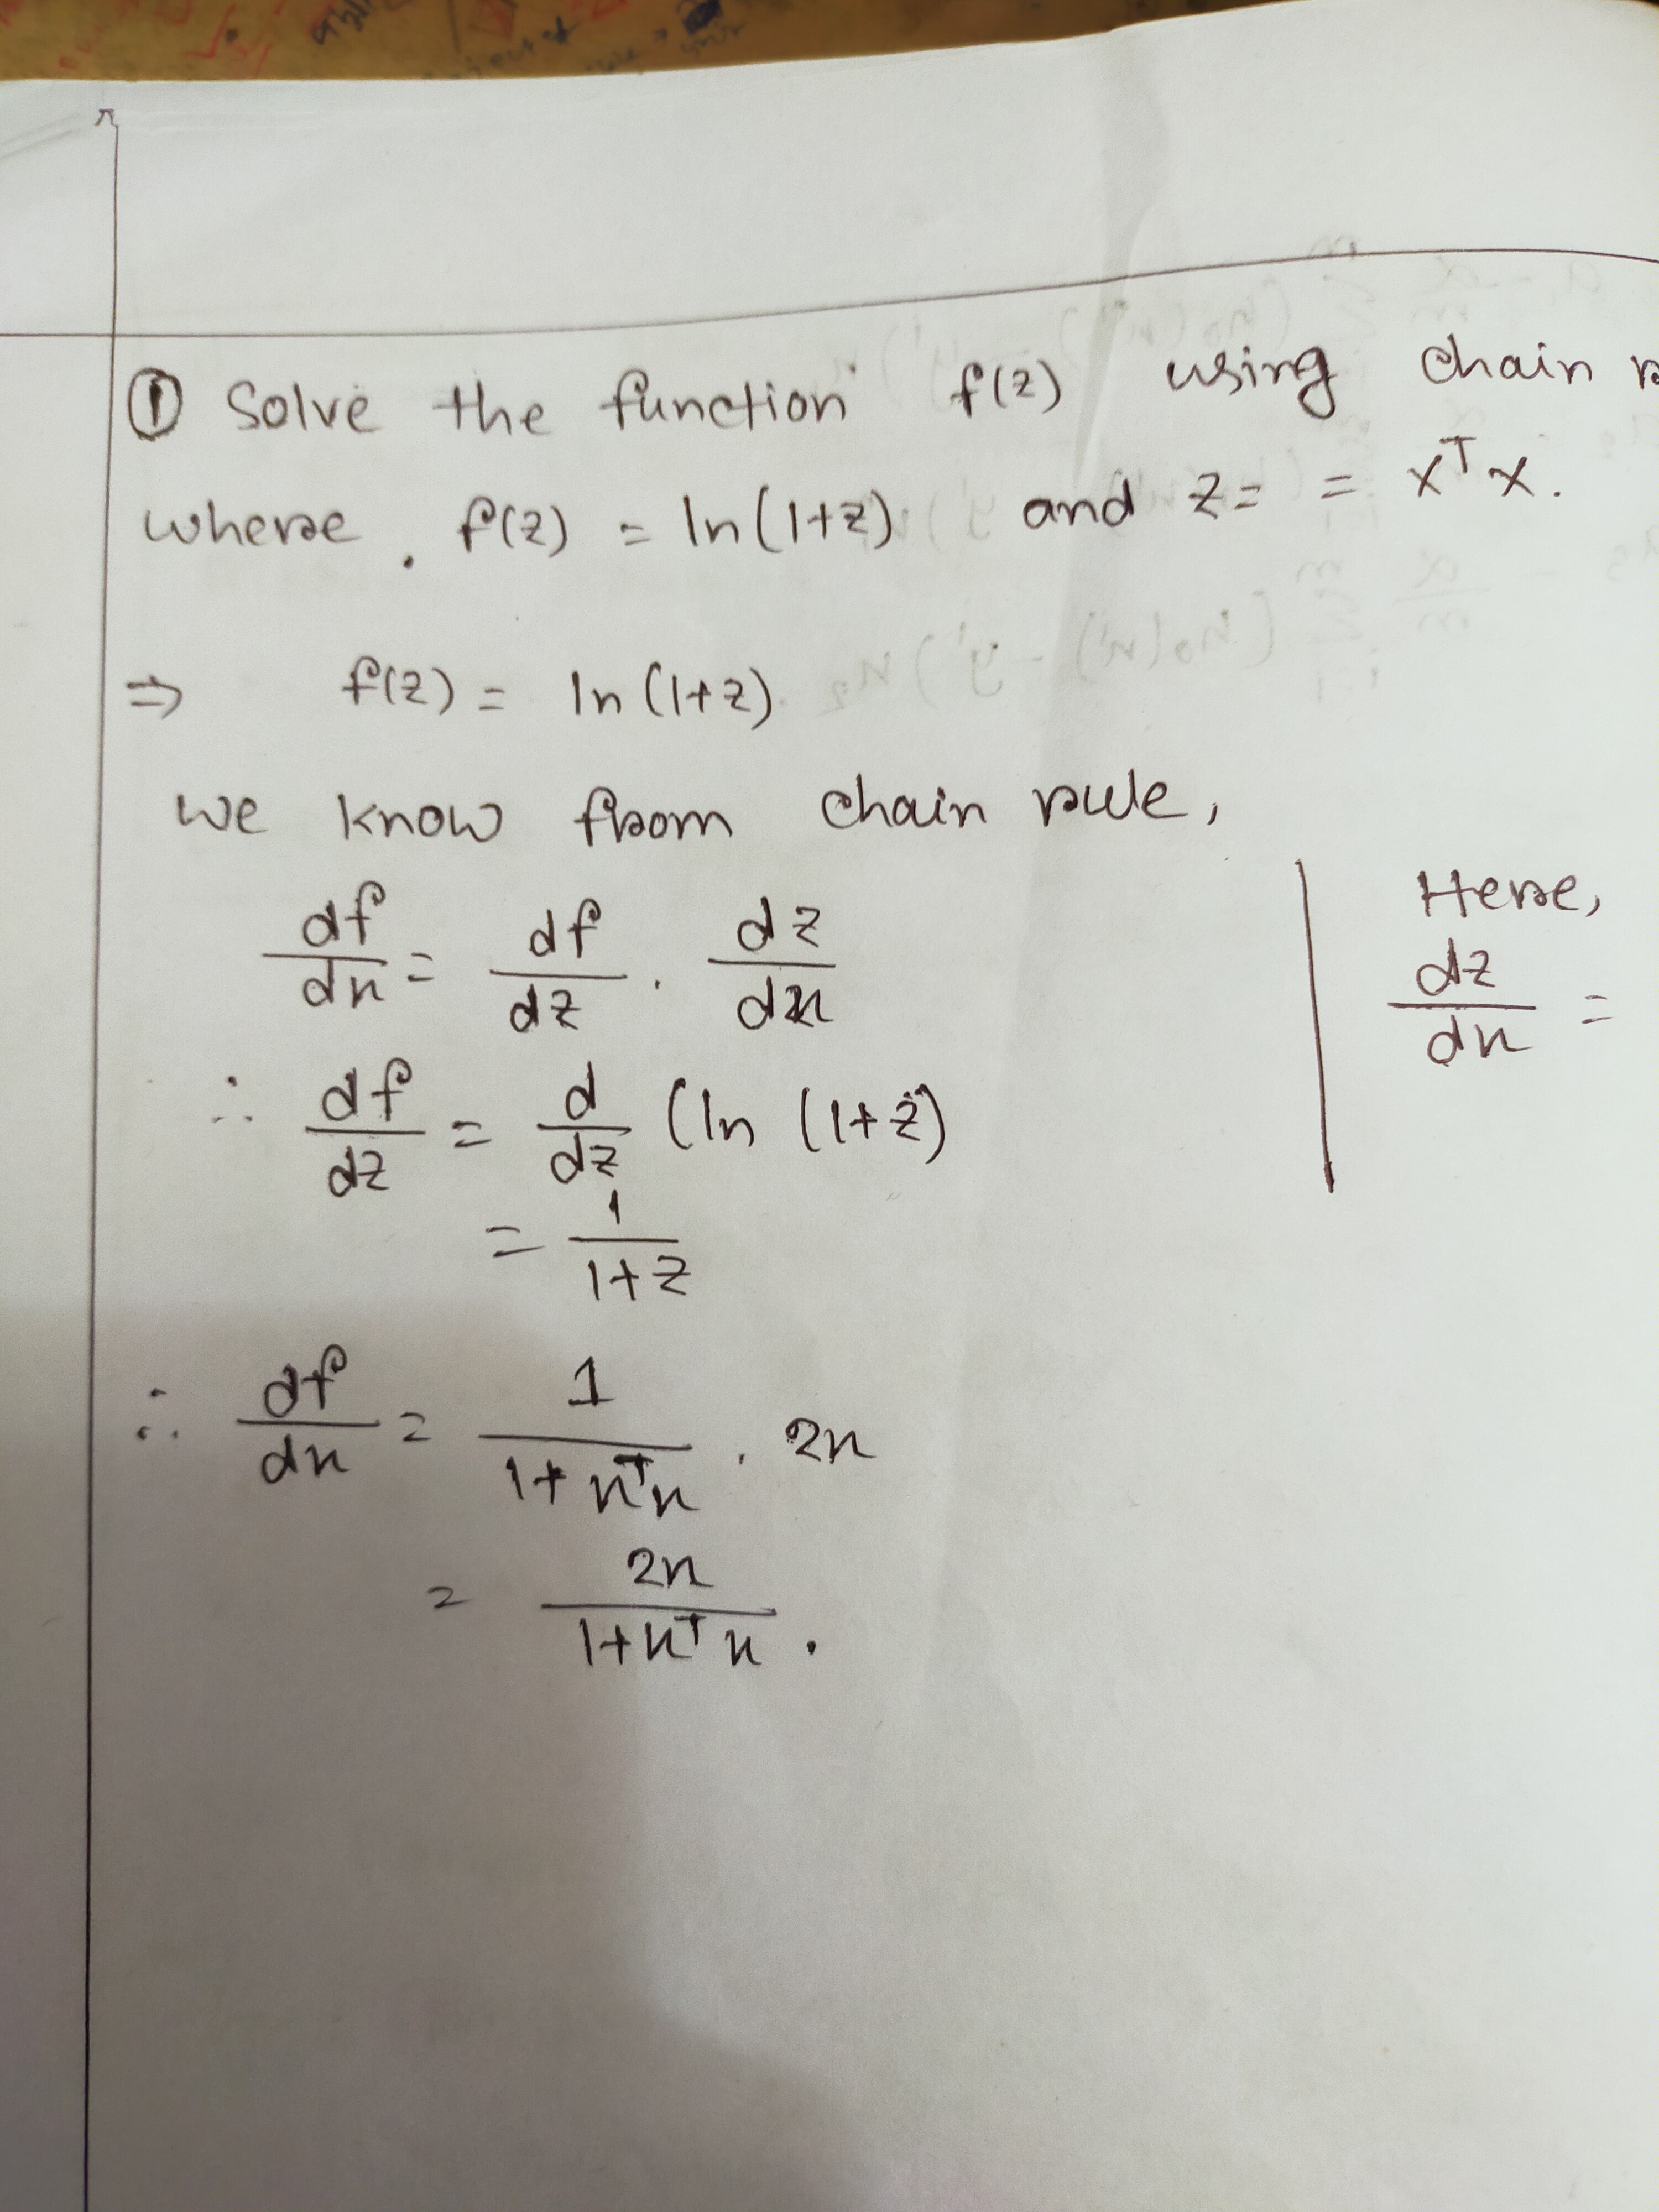 ① Solve the function f(z) using chain
where, f(z) = ln(1+z) and z = = x^T x.
⇒ f(z) = ln(1+z)
we know from chain rule,
df/dx = df/dz . dz/dx
∴ df/dz = d/dz (ln (1+z)
= 1/(1+z)
∴ df/dx = 1/(1+x^T x) . 2x
= 2x/(1+x^T x) .
Here,
dz/dx =